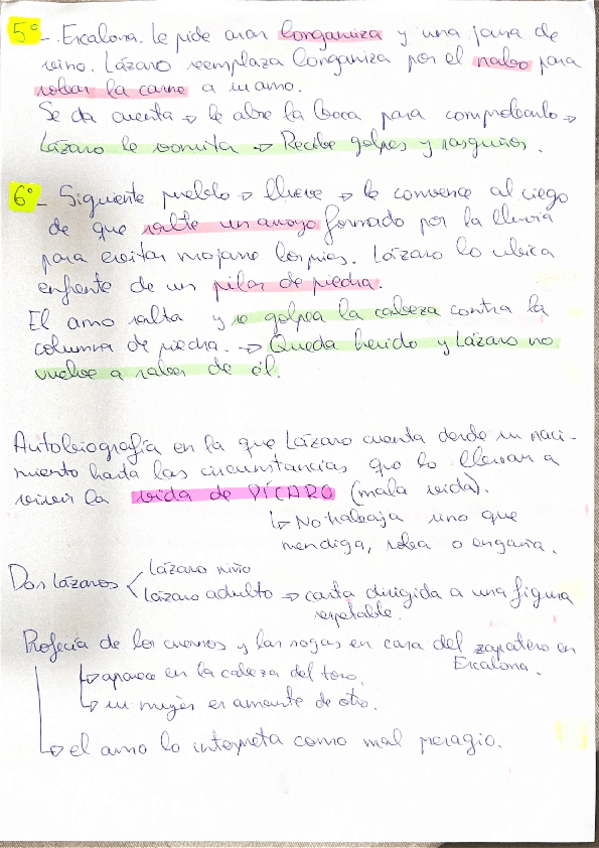 5º-. Escalona. Le pide asar longaniza y una jarra de
vino. Lázaro reemplaza longaniza por el nabo para
robar la carne a su amo.
Se da cuenta → le abre la boca para comprobarlo →
Lázaro le vomita → Recibe golpes y rasguños.
6º- Siguiente pueblo → llueve → le convence al ciego
de que salte un arroyo formado por la lluvia
para evitar mojarse los pies. Lázaro lo ubica
enfrente de un pilar de piedra.
El amo salta y se golpea la cabeza contra la
columna de piedra. → Queda herido y Lázaro no
vuelve a saber de él.
Autobiografía en la que Lázaro cuenta desde su naci-
miento hasta las circunstancias que lo llevan a
vivir la vida de PÍCARO (mala vida).
↳ No trabaja sino que
mendiga, roba o engaña.
Dos Lázaros < Lázaro niño
Lázaro adulto → carta dirigida a una figura
respetable.
Profecía de los cuernos y las sogas en casa del zapatero en
Escalona.
↳ aparece en la cabeza del toro.
↳ su mujer es amante de otro.
↳ el amo lo interpreta como mal presagio.